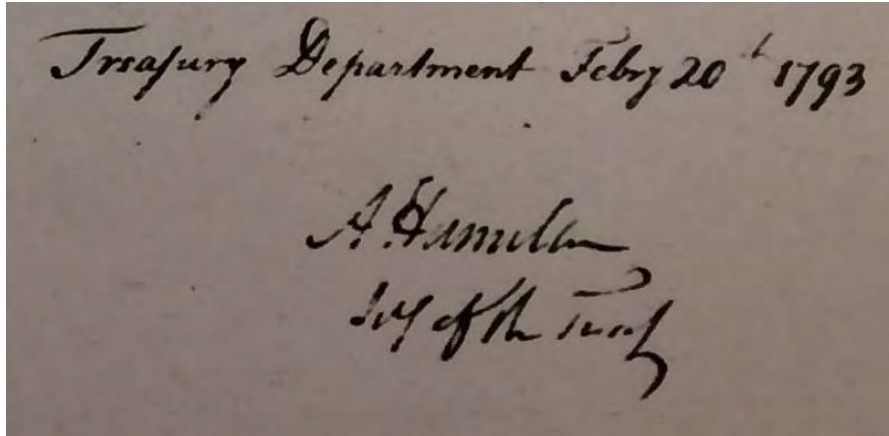 Treasury Department Febry 20th 1793
A. Hamilton
Secy of the Treasy